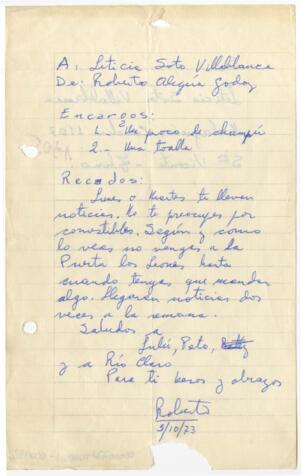 A: Leticia Soto Villablanca
De: Roberto Alegría Godoy
Encargos:
1.- Un poco de champú
2.- Una toalla
Recados:
Lunes o Martes te lleven
noticias. No te preocupes por
comestibles. Según y como
lo veas no vengas a la
Puerta los Leones hasta
cuando tengas que mandar
algo. Llegarán noticias dos
veces a la semana.
Saludos a
Lulú, Pato,
y a Río Claro
Para ti besos y abrazos
Roberto
5/10/73